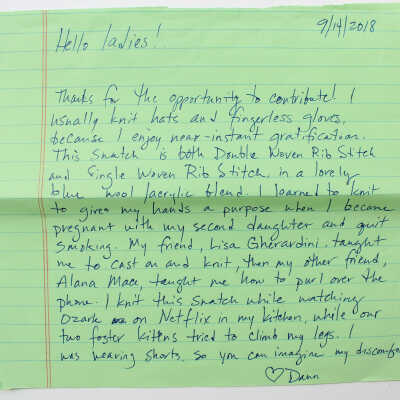 9/14/2018
Hello ladies!
Thanks for the opportunity to contribute! I
usually knit hats and fingerless gloves,
because I enjoy near-instant gratification.
This Snatch is both Double Woven Rib Stitch
and Single Woven Rib Stitch, in a lovely
blue wool/acrylic blend. I learned to knit
to give my hands a purpose when I became
pregnant with my second daughter and quit
smoking. My friend, Lisa Gherardini, taught
me to cast on and knit, then my other friend,
Alana Mace, taught me how to purl over the
phone. I knit this snatch while watching
Ozark on Netflix in my kitchen, while our
two foster kittens tried to climb my legs. I
was wearing shorts, so you can imagine my discomfort
♡ Dawn